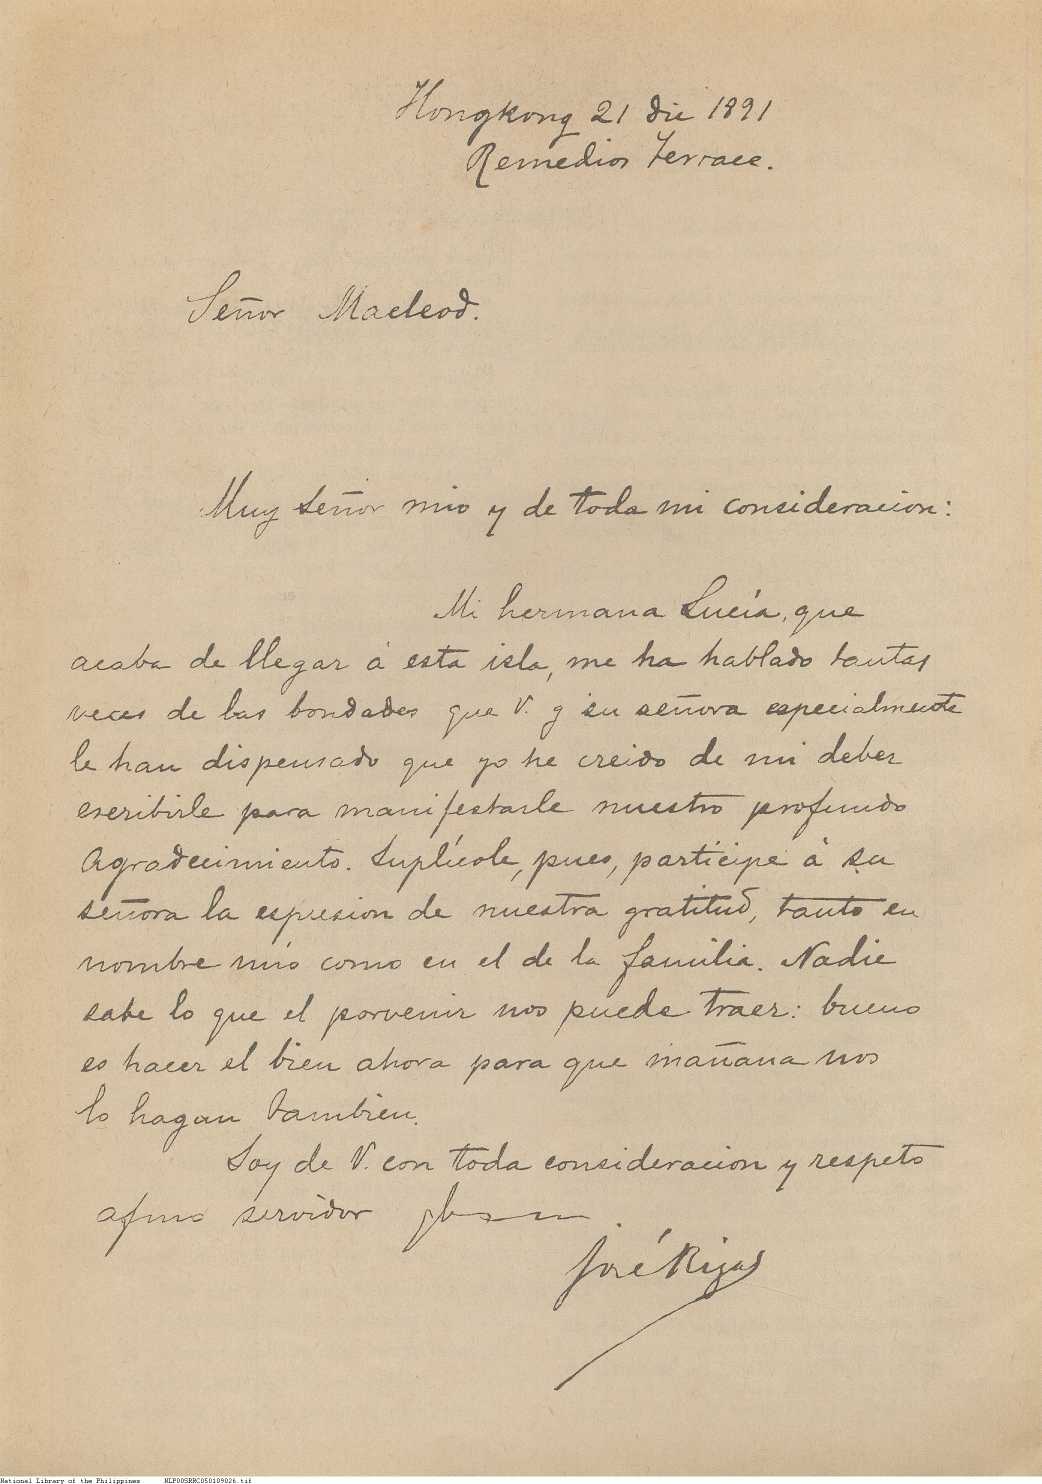 Hongkong 21 Dic 1891
Remedios Terrace.
Señor Macleod.
Muy Señor mio y de toda mi consideracion:
Mi hermana Lucía, que
acaba de llegar á esta isla, me ha hablado tantas
veces de las bondades que V. y su señora especialmente
le han dispensado que yo he creido de mi deber
escribirle para manifestarle nuestro profundo
Agradecimiento. Suplícole, pues, participe á su
señora la espresion de nuestra gratitud, tanto en
nombre mio como en el de la familia. Nadie
sabe lo que el porvenir nos puede traer: bueno
es hacer el bien ahora para que mañana nos
lo hagan tambien.
Soy de V. con toda consideracion y respeto
afmo servidor
José Rizal
National Library of the Philippines NLP00SRRC050109026.tif